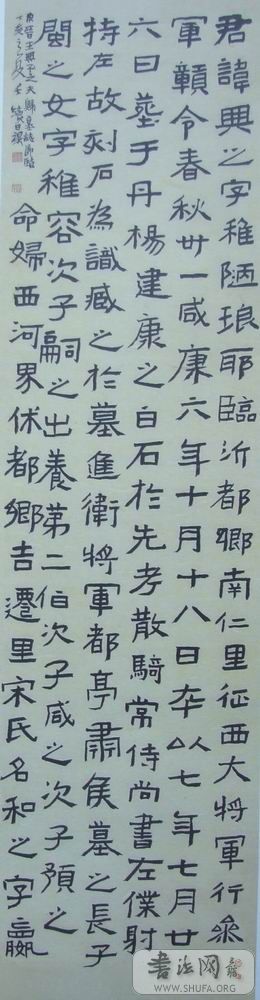 君諱興之字稚陋琅耶臨沂都鄉南仁里征西大將軍行參
軍贛令春秋卅一咸康六年十月十八日卒以七年七月廿
六日葬于丹楊建康之白石於先考散騎常侍尚書左僕射
持左故刻石為識臧之於墓進衛將軍都亭肅侯墓之長子
閩之女字稚容次子嗣之出養第二伯次子咸之次子預之
命婦西河界休都鄉吉遷里宋氏名和之字嬴
東晉王興之夫婦墓誌節臨
丁亥之夏
書法网
WWW.SHUFA.ORG